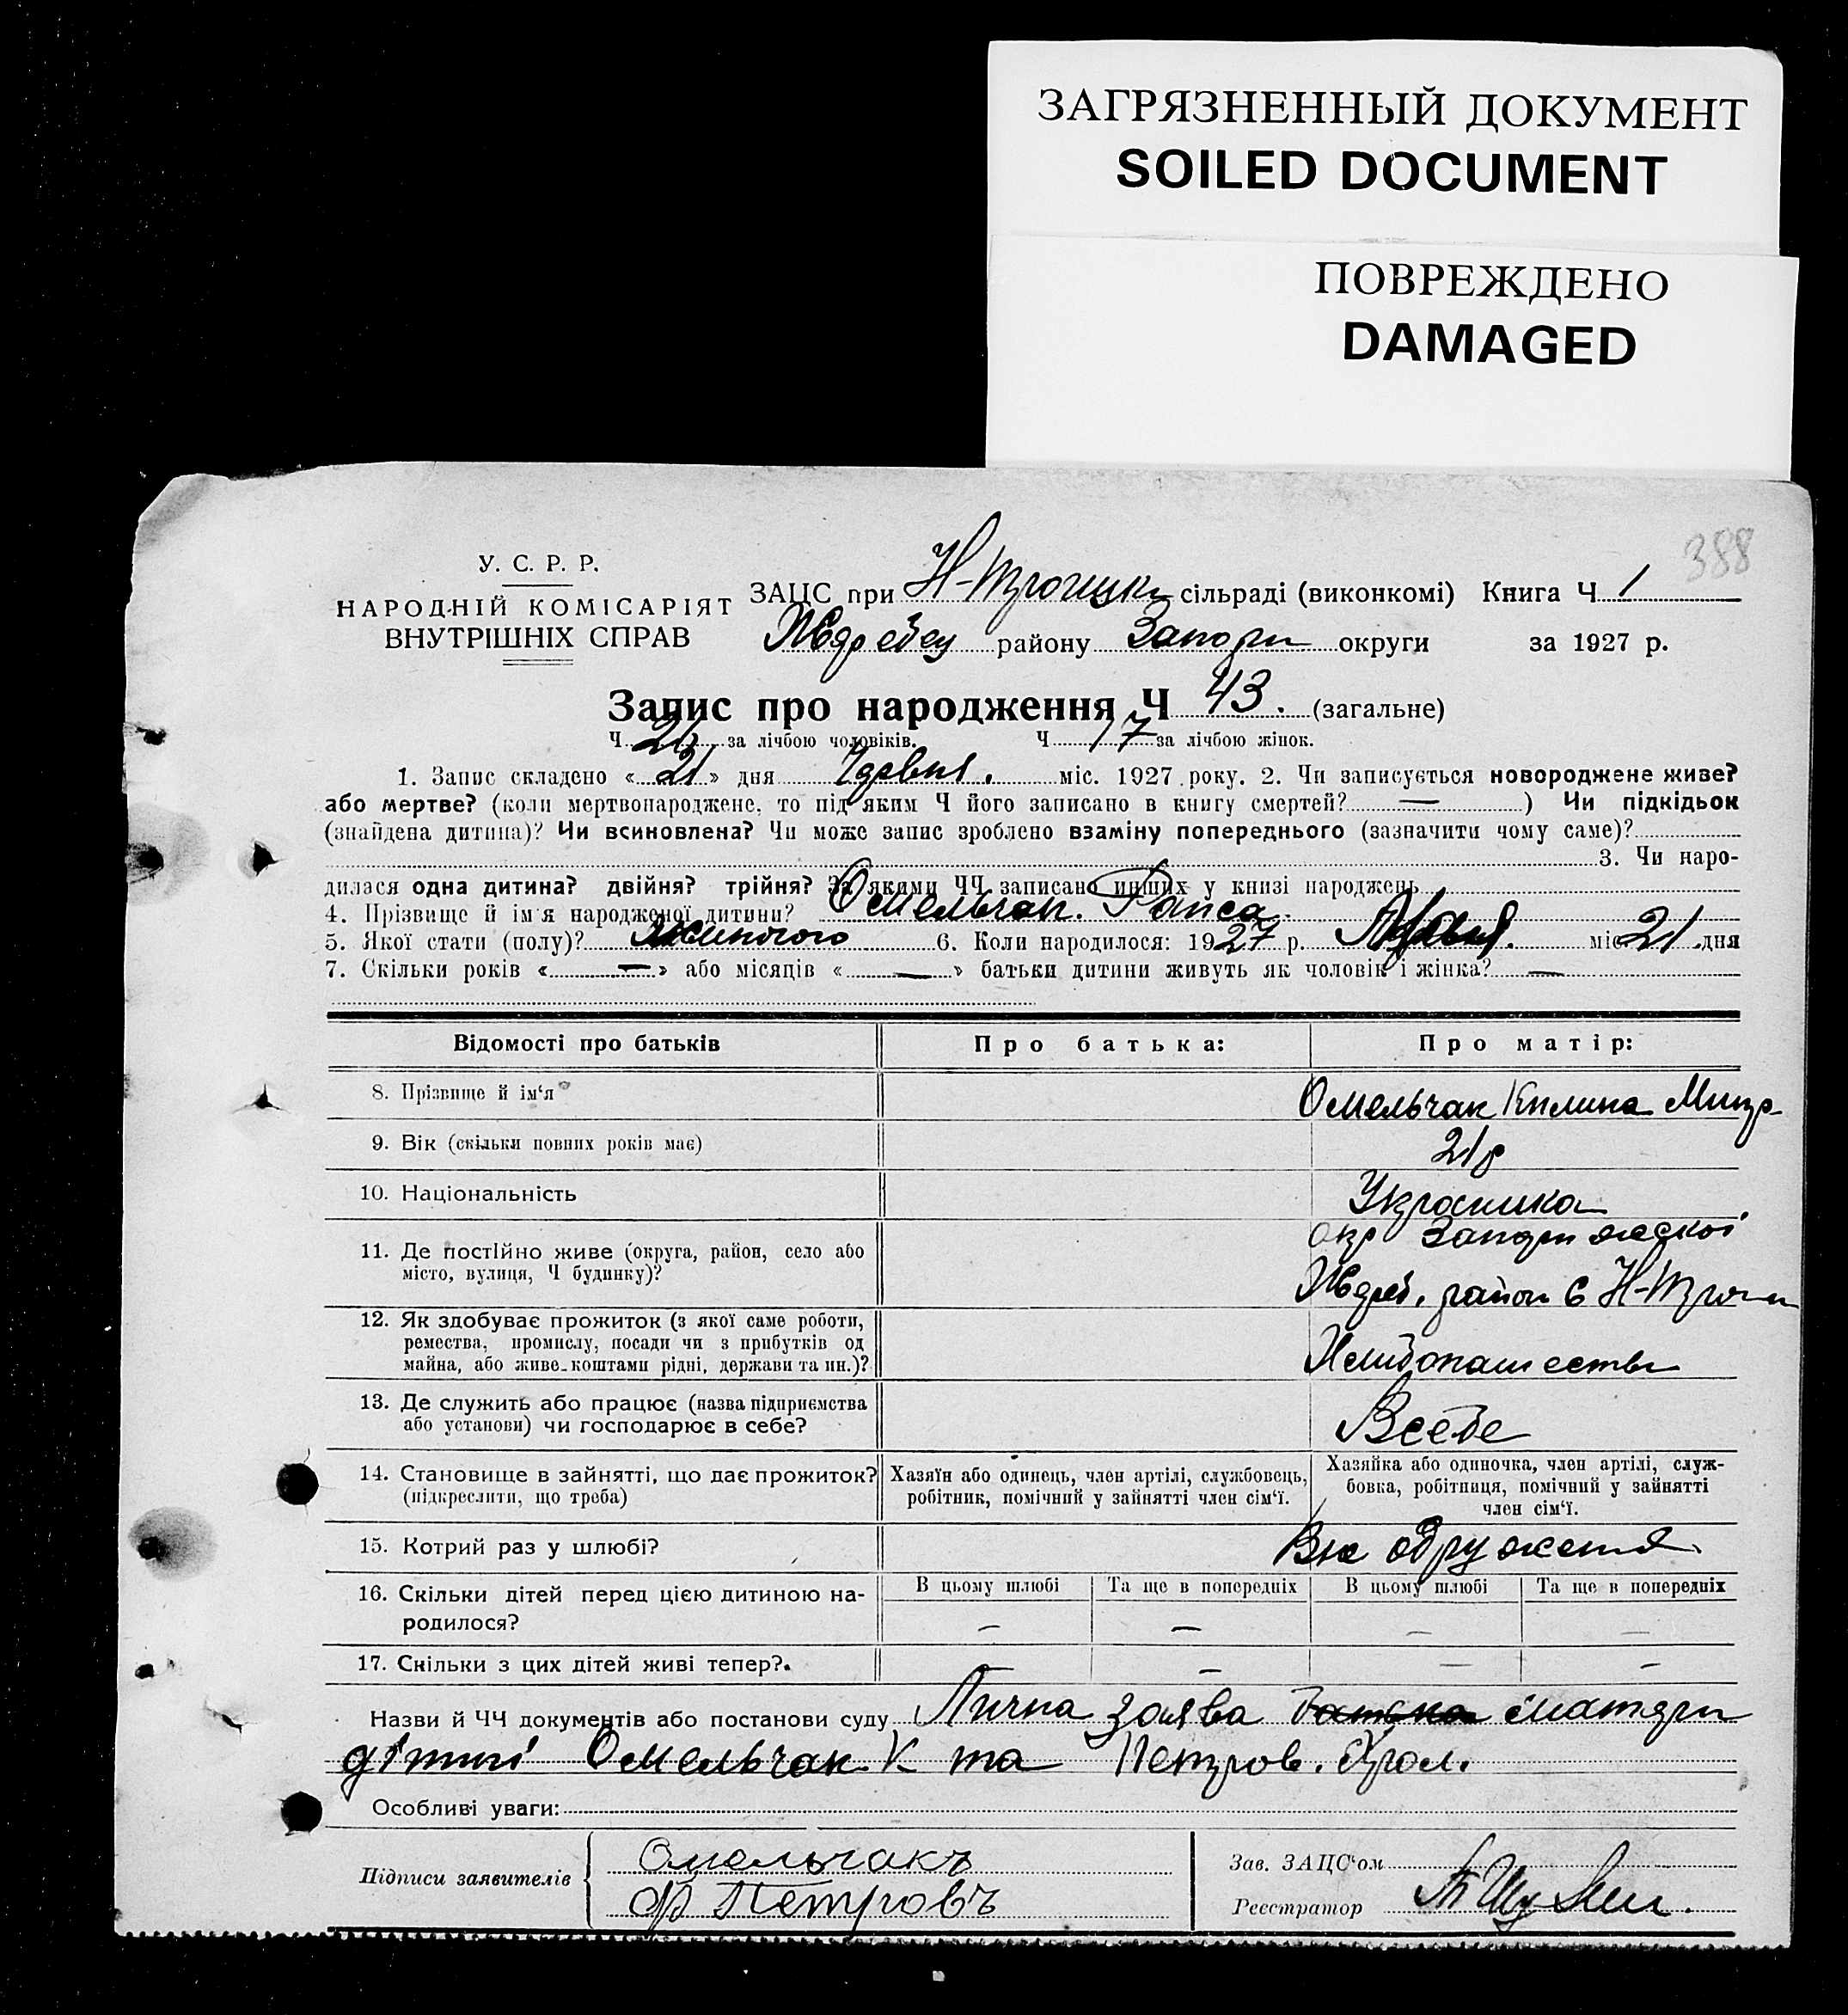 ЗАГРЯЗНЕННЫЙ ДОКУМЕНТ
SOILED DOCUMENT
ПОВРЕЖДЕНО
DAMAGED
388
У. С. Р. Р.
НАРОДНІЙ КОМІСАРІЯТ
ВНУТРІШНІХ СПРАВ
ЗАЦС при Н-Троицки сільраді (виконкомі) Книга Ч 1
району Запори округи за 1927 р.
Запис про народження Ч 43. (загальне)
Ч 26 за лічбою чоловіків. Ч 17 за лічбою жінок.
1. Запис складено «21» дня міс. 1927 року. 2. Чи записується новороджене живе?
або мертве? (коли мертвонароджене, то під яким Ч його записано в книгу смертей? — ) Чи підкідьок
(знайдена дитина)? Чи всиновлена? Чи може запис зроблено взаміну попереднього (зазначити чому саме)?
3. Чи наро-
дилася одна дитина? двійня? трійня? За якими ЧЧ записано инших у книзі народжень
4. Прізвище й ім'я народженої дитини? Омельчак. Раиса.
5. Якої стати (полу)? Жиночого 6. Коли народилося: 1927 р. міс. 21 дня
7. Скільки років « — » або місяців « — » батьки дитини живуть як чоловік і жінка? —
Відомості про батьків Про батька: Про матір:
8. Прізвище й ім'я Омельчак Килина Митр
9. Вік (скільки повних років має) 21 р
10. Національність Украинка
11. Де постійно живе (округа, район, село або
місто, вулиця, Ч будинку)?
окр Запорижскоі
район с Н-Трои
12. Як здобуває прожиток (з якої саме роботи,
ремества, промислу, посади чи з прибутків од
майна, або живе коштами рідні, держави та ин.)?
Хлибопашество
13. Де служить або працює (назва підприємства
або установи) чи господарює в себе?
Всебе
14. Становище в зайнятті, що дає прожиток?
(підкреслити, що треба)
Хазяїн або одинець, член артілі, службовець,
робітник, помічний у зайнятті член сім'ї.
Хазяйка або одиночка, член артілі, служ-
бовка, робітниця, помічний у зайнятті
член сім'ї.
15. Котрий раз у шлюбі? Вне одружения.
16. Скільки дітей перед цією дитиною на-
родилося?
В цьому шлюбі Та ще в попередніх В цьому шлюбі Та ще в попередніх
— — — —
17. Скільки з цих дітей живі тепер? — — — —
Назви й ЧЧ документів або постанови суду Лична заява батька матери
дітині Омельчак К та Петров.
Особливі уваги:
Підписи заявителів
Омельчакъ
Ф Петровъ
Зав. ЗАЦС'ом
Реєстратор